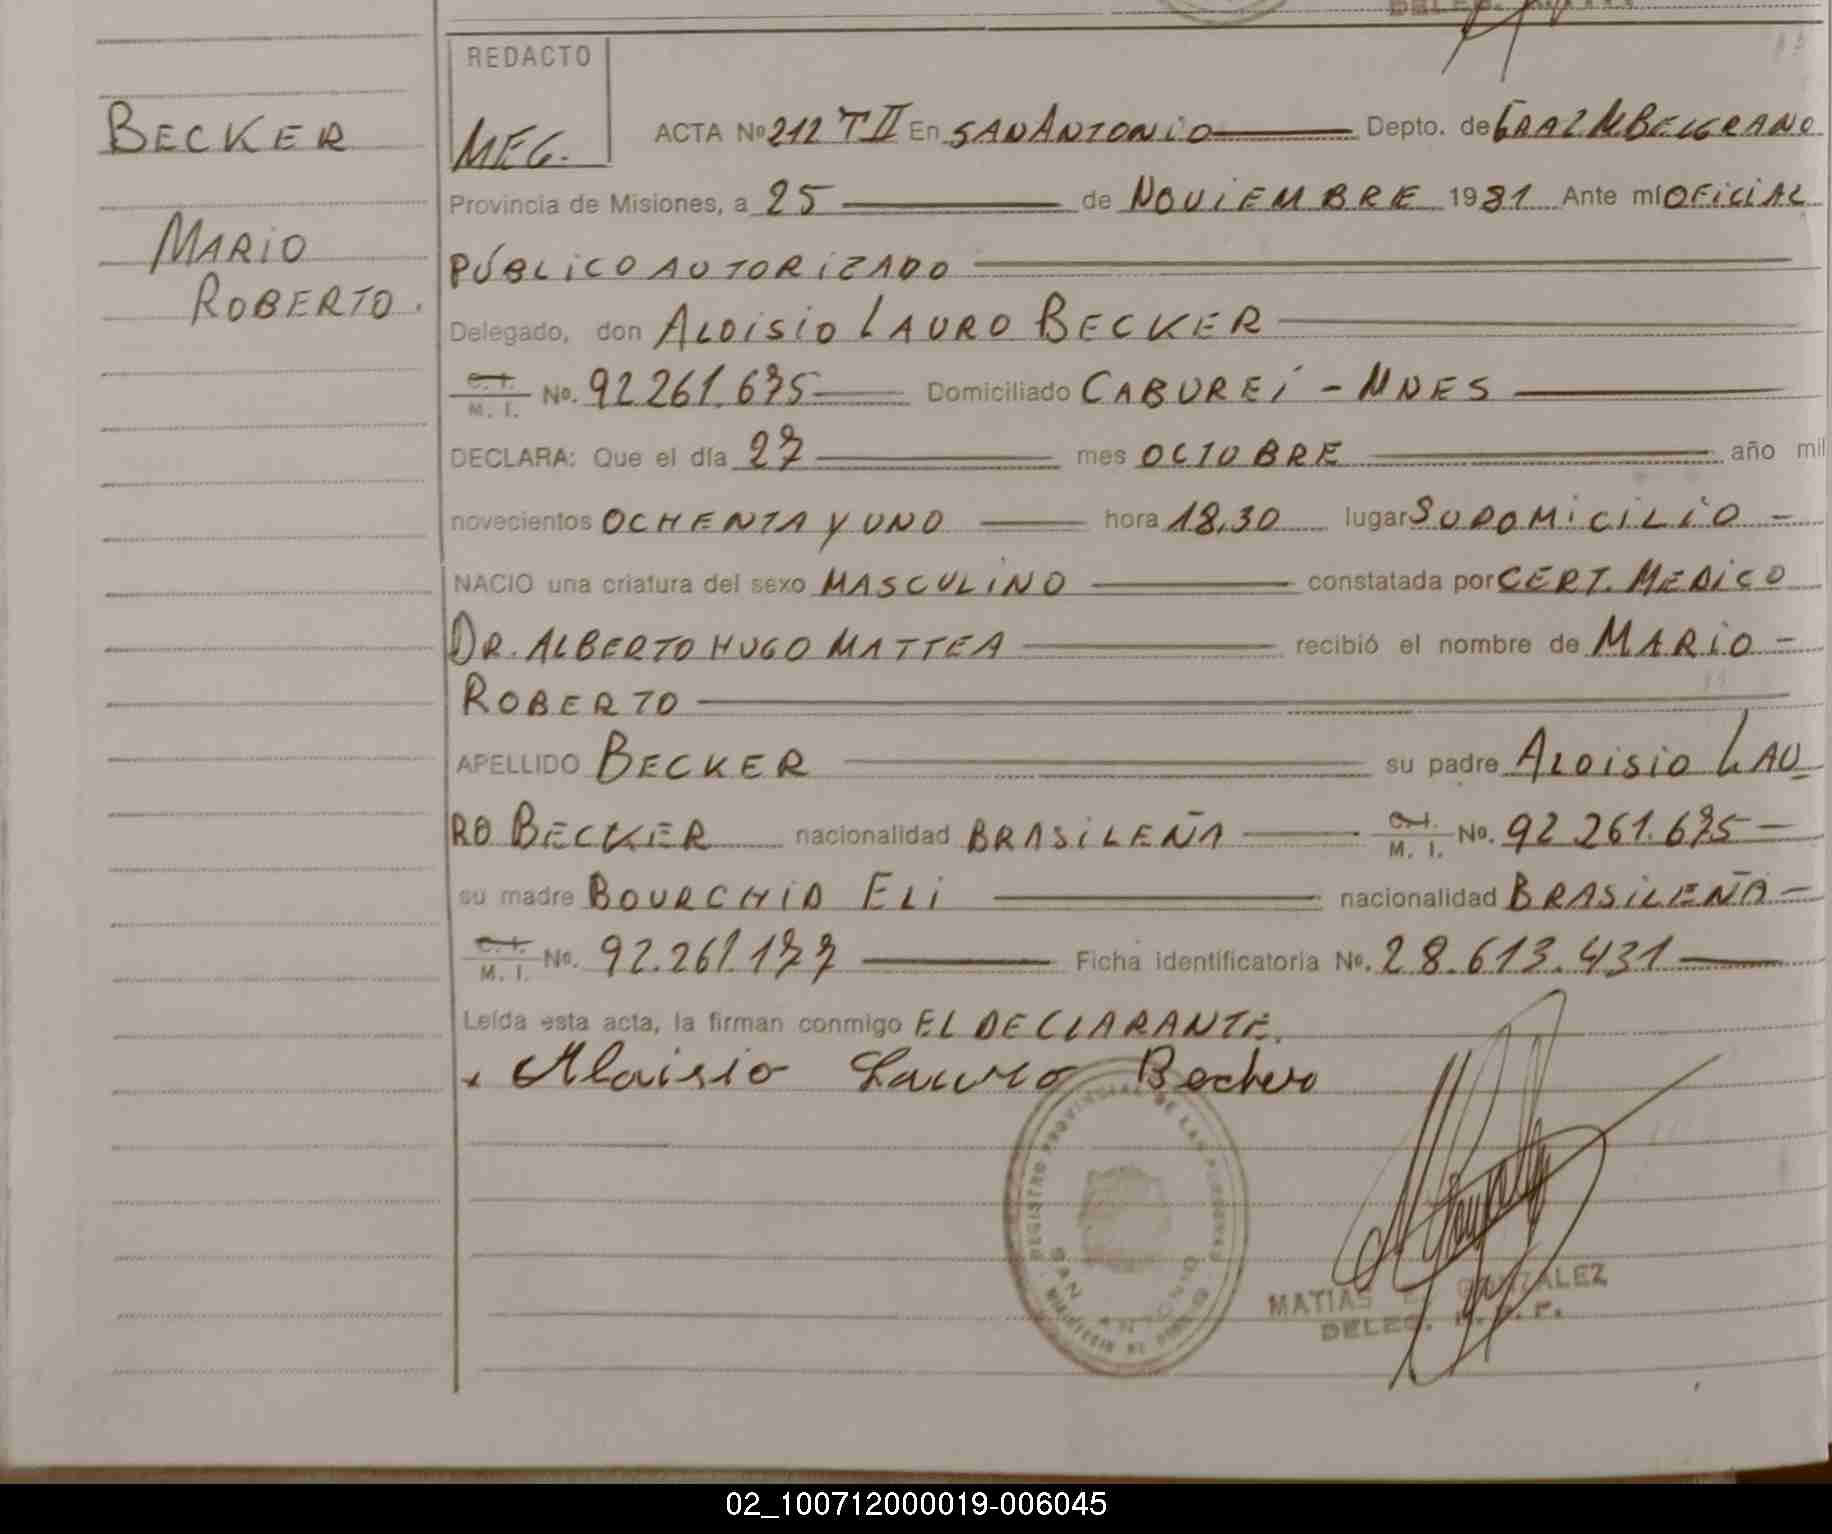 DELEG.
REDACTO
BECKER
MEG.
ACTA Nº 212 T II En SAN ANTONIO Depto. de GRAL M BELGRANO
Provincia de Misiones, a 25 de NOVIEMBRE 1981 Ante mí OFICIAL
MARIO
PÚBLICO AUTORIZADO
ROBERTO.
Delegado, don ALOISIO LAURO BECKER
C. I. M. I. No. 92 261.675 Domiciliado CABUREÍ - MNES
DECLARA: Que el día 27 mes OCTUBRE año mil
novecientos OCHENTA Y UNO hora 18,30 lugar SU DOMICILIO -
NACIO una criatura del sexo MASCULINO constatada por CERT. MEDICO
DR. ALBERTO HUGO MATTEA recibió el nombre de MARIO -
ROBERTO
APELLIDO BECKER su padre ALOISIO LAU_
RO BECKER nacionalidad BRASILEÑA C. I. M. I. No. 92 261.675 -
su madre BOURCHID ELI nacionalidad BRASILEÑA -
C. I. M. I. No. 92.261.177 Ficha identificatoria No. 28.613.431
Leída esta acta, la firman conmigo EL DECLARANTE.
Aloisio Lauro Becker
REGISTRO PROVINCIAL DE LAS PERSONAS
SAN ANTONIO
MATIAS E. GONZALEZ
DELEG. R. P. P.
02_100712000019-006045